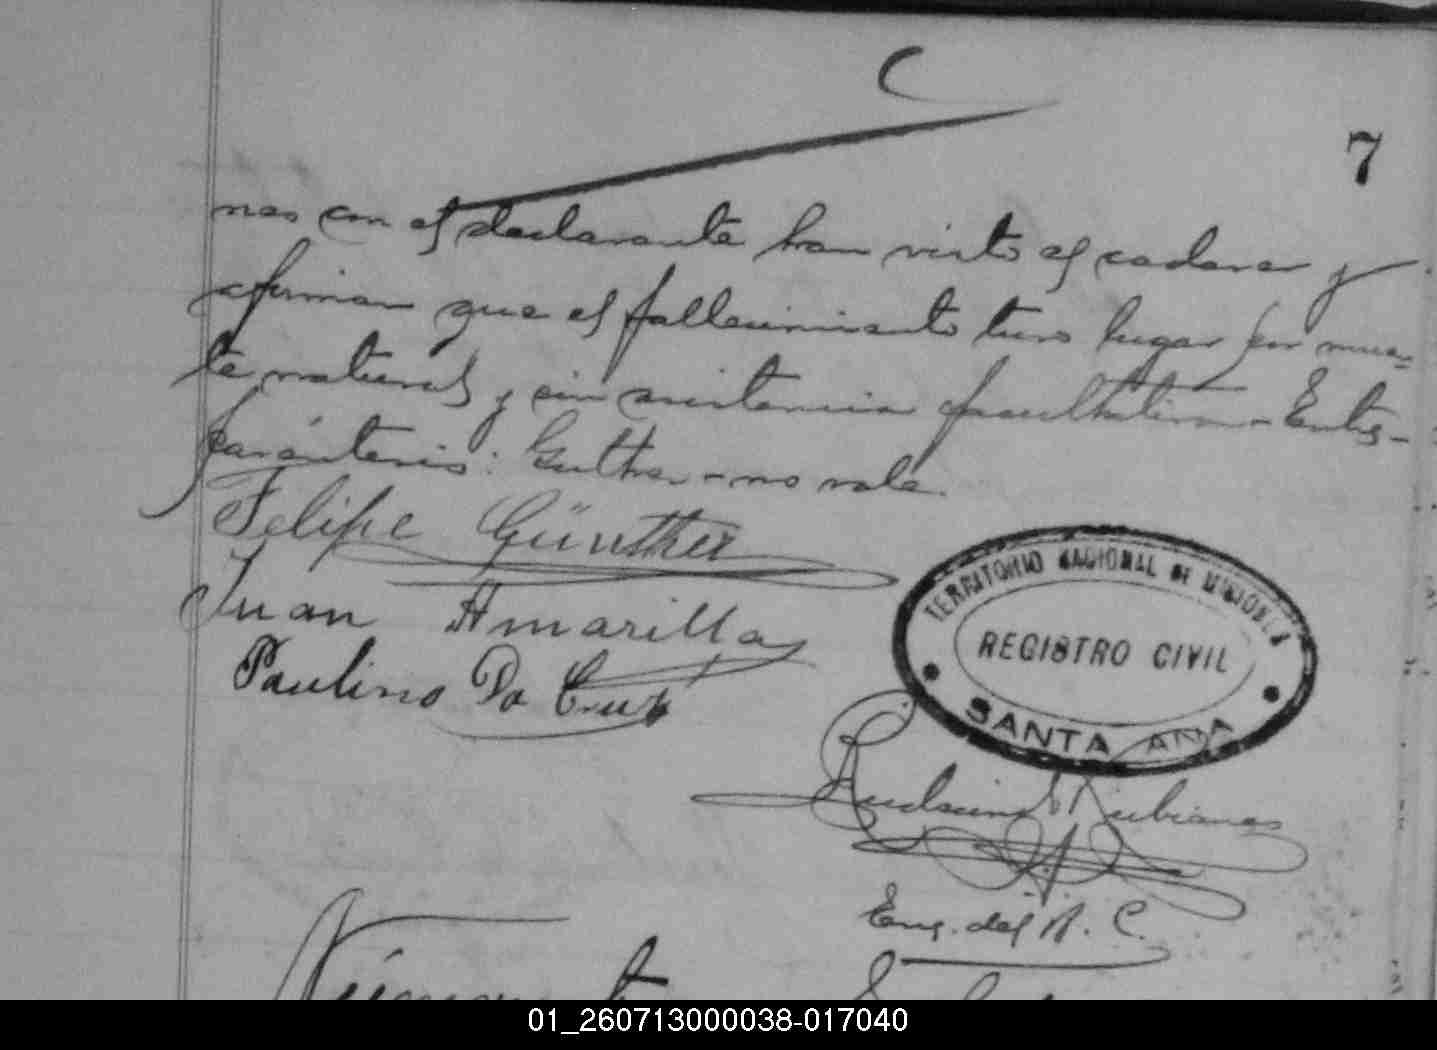 7
nes con el declarante han visto el cadaver y
afirman que el fallecimiento tuvo lugar por muer=
te natural y sin asistencia facultativa - Entre-
paréntesis: Guther - no vale.
Felipe Günther
Juan Amarilla
Paulino Da Cruz
TERRITORIO NACIONAL DE MISIONES
REGISTRO CIVIL
SANTA ANA
Rudesindo Rubianes
Enc. del R. C.
01_260713000038-017040